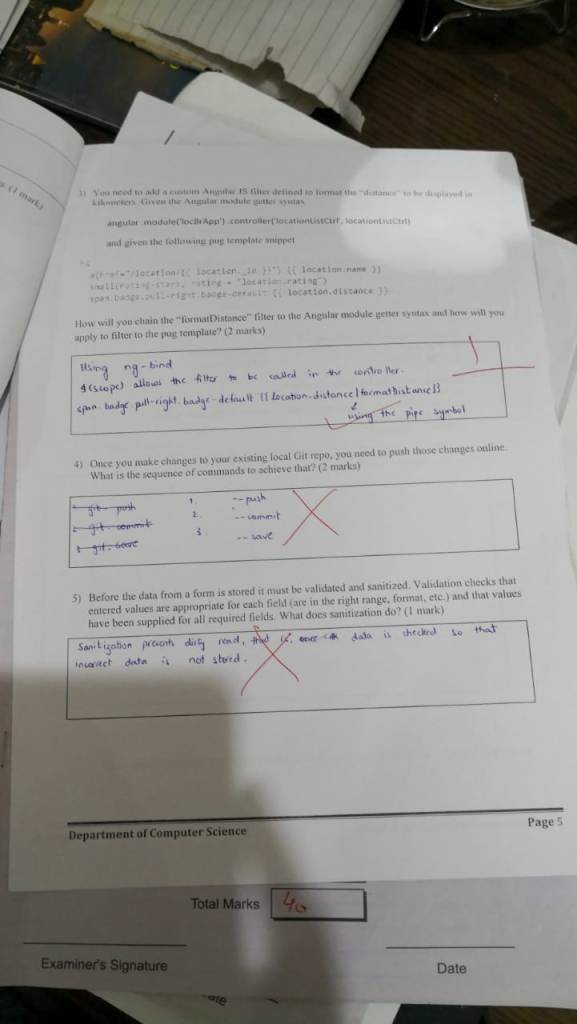 s. (1 mark)
3) You need to add a custom Angular JS filter defined to format the "distance" to be displayed in
kilometers. Given the Angular module getter syntax
angular .module('loc8rApp') .controller('locationListCtrl', locationListCtrl)
and given the following pug template snippet
h4
a(href="/location/{{ location._id }}") {{ location.name }}
small(rating-stars, rating = "location.rating")
span.badge.pull-right.badge-default {{ location.distance }}
How will you chain the "formatDistance" filter to the Angular module getter syntax and how will you
apply to filter to the pug template? (2 marks)
1
Using ng-bind
(scope) allows the filter to be called in the controller.
span.badge.pull-right.badge-default {{ location.distance | formatDistance }}
using the pipe symbol
4) Once you make changes to your existing local Git repo, you need to push those changes online.
What is the sequence of commands to achieve that? (2 marks)
1. git push 1. --push
2. git commit 2. --commit
3. git save 3. -- save
5) Before the data from a form is stored it must be validated and sanitized. Validation checks that
entered values are appropriate for each field (are in the right range, format, etc.) and that values
have been supplied for all required fields. What does sanitization do? (1 mark)
Sanitization prevents dirty read, that is, data is checked so that
incorrect data is not stored.
Department of Computer Science
Page 5
Total Marks 40
Examiner's Signature
Date